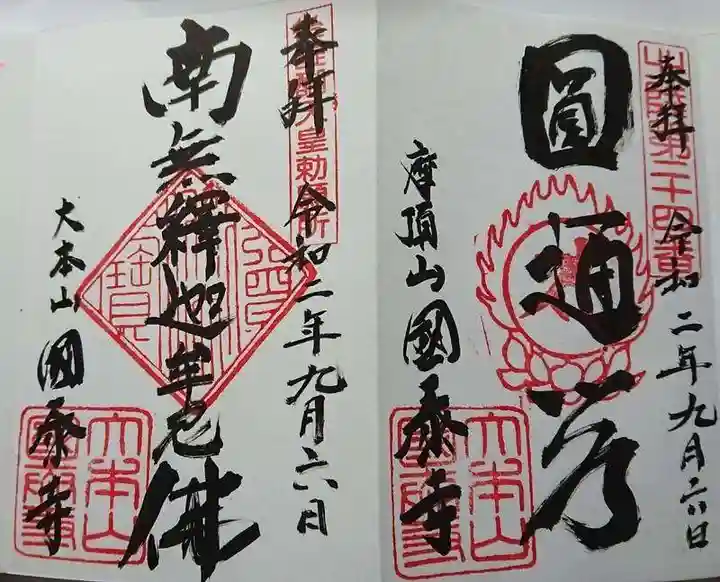 奉拝
圓通尊
令和二年九月六日
摩頂山國泰寺
奉拝
南無釋迦牟尼佛
令和二年九月六日
大本山國泰寺
佛法僧寳
大本山